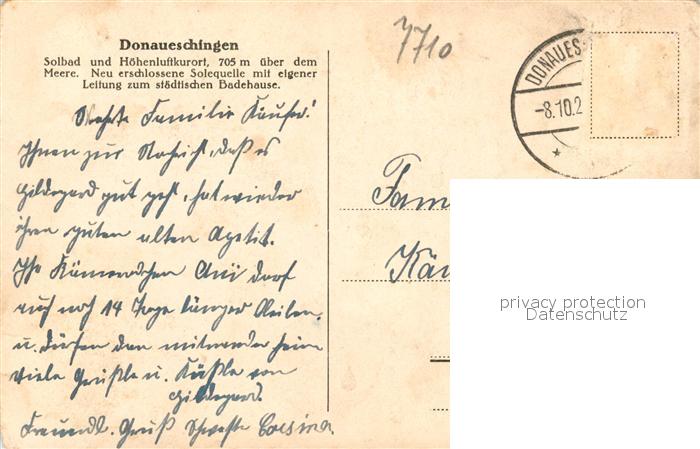 Donaueschingen
Solbad und Höhenluftkurort, 705 m über dem
Meere. Neu erschlossene Solequelle mit eigener
Leitung zum städtischen Badehause.
7710
DONAUES
-8.10.2
Werte Familie Käufer!
Ihnen zur Nachricht, daß es
Hildegard gut geht, hat wieder
ihren guten alten Apetit.
Ihr Kameradchen Anni darf
auch noch 14 Tage länger bleiben,
u. dürfen dann miteinander heim
Viele Grüßle u. Küßle von
Hildegard.
Freundl. Gruß Schwester
Fam
Käu
privacy protection
Datenschutz